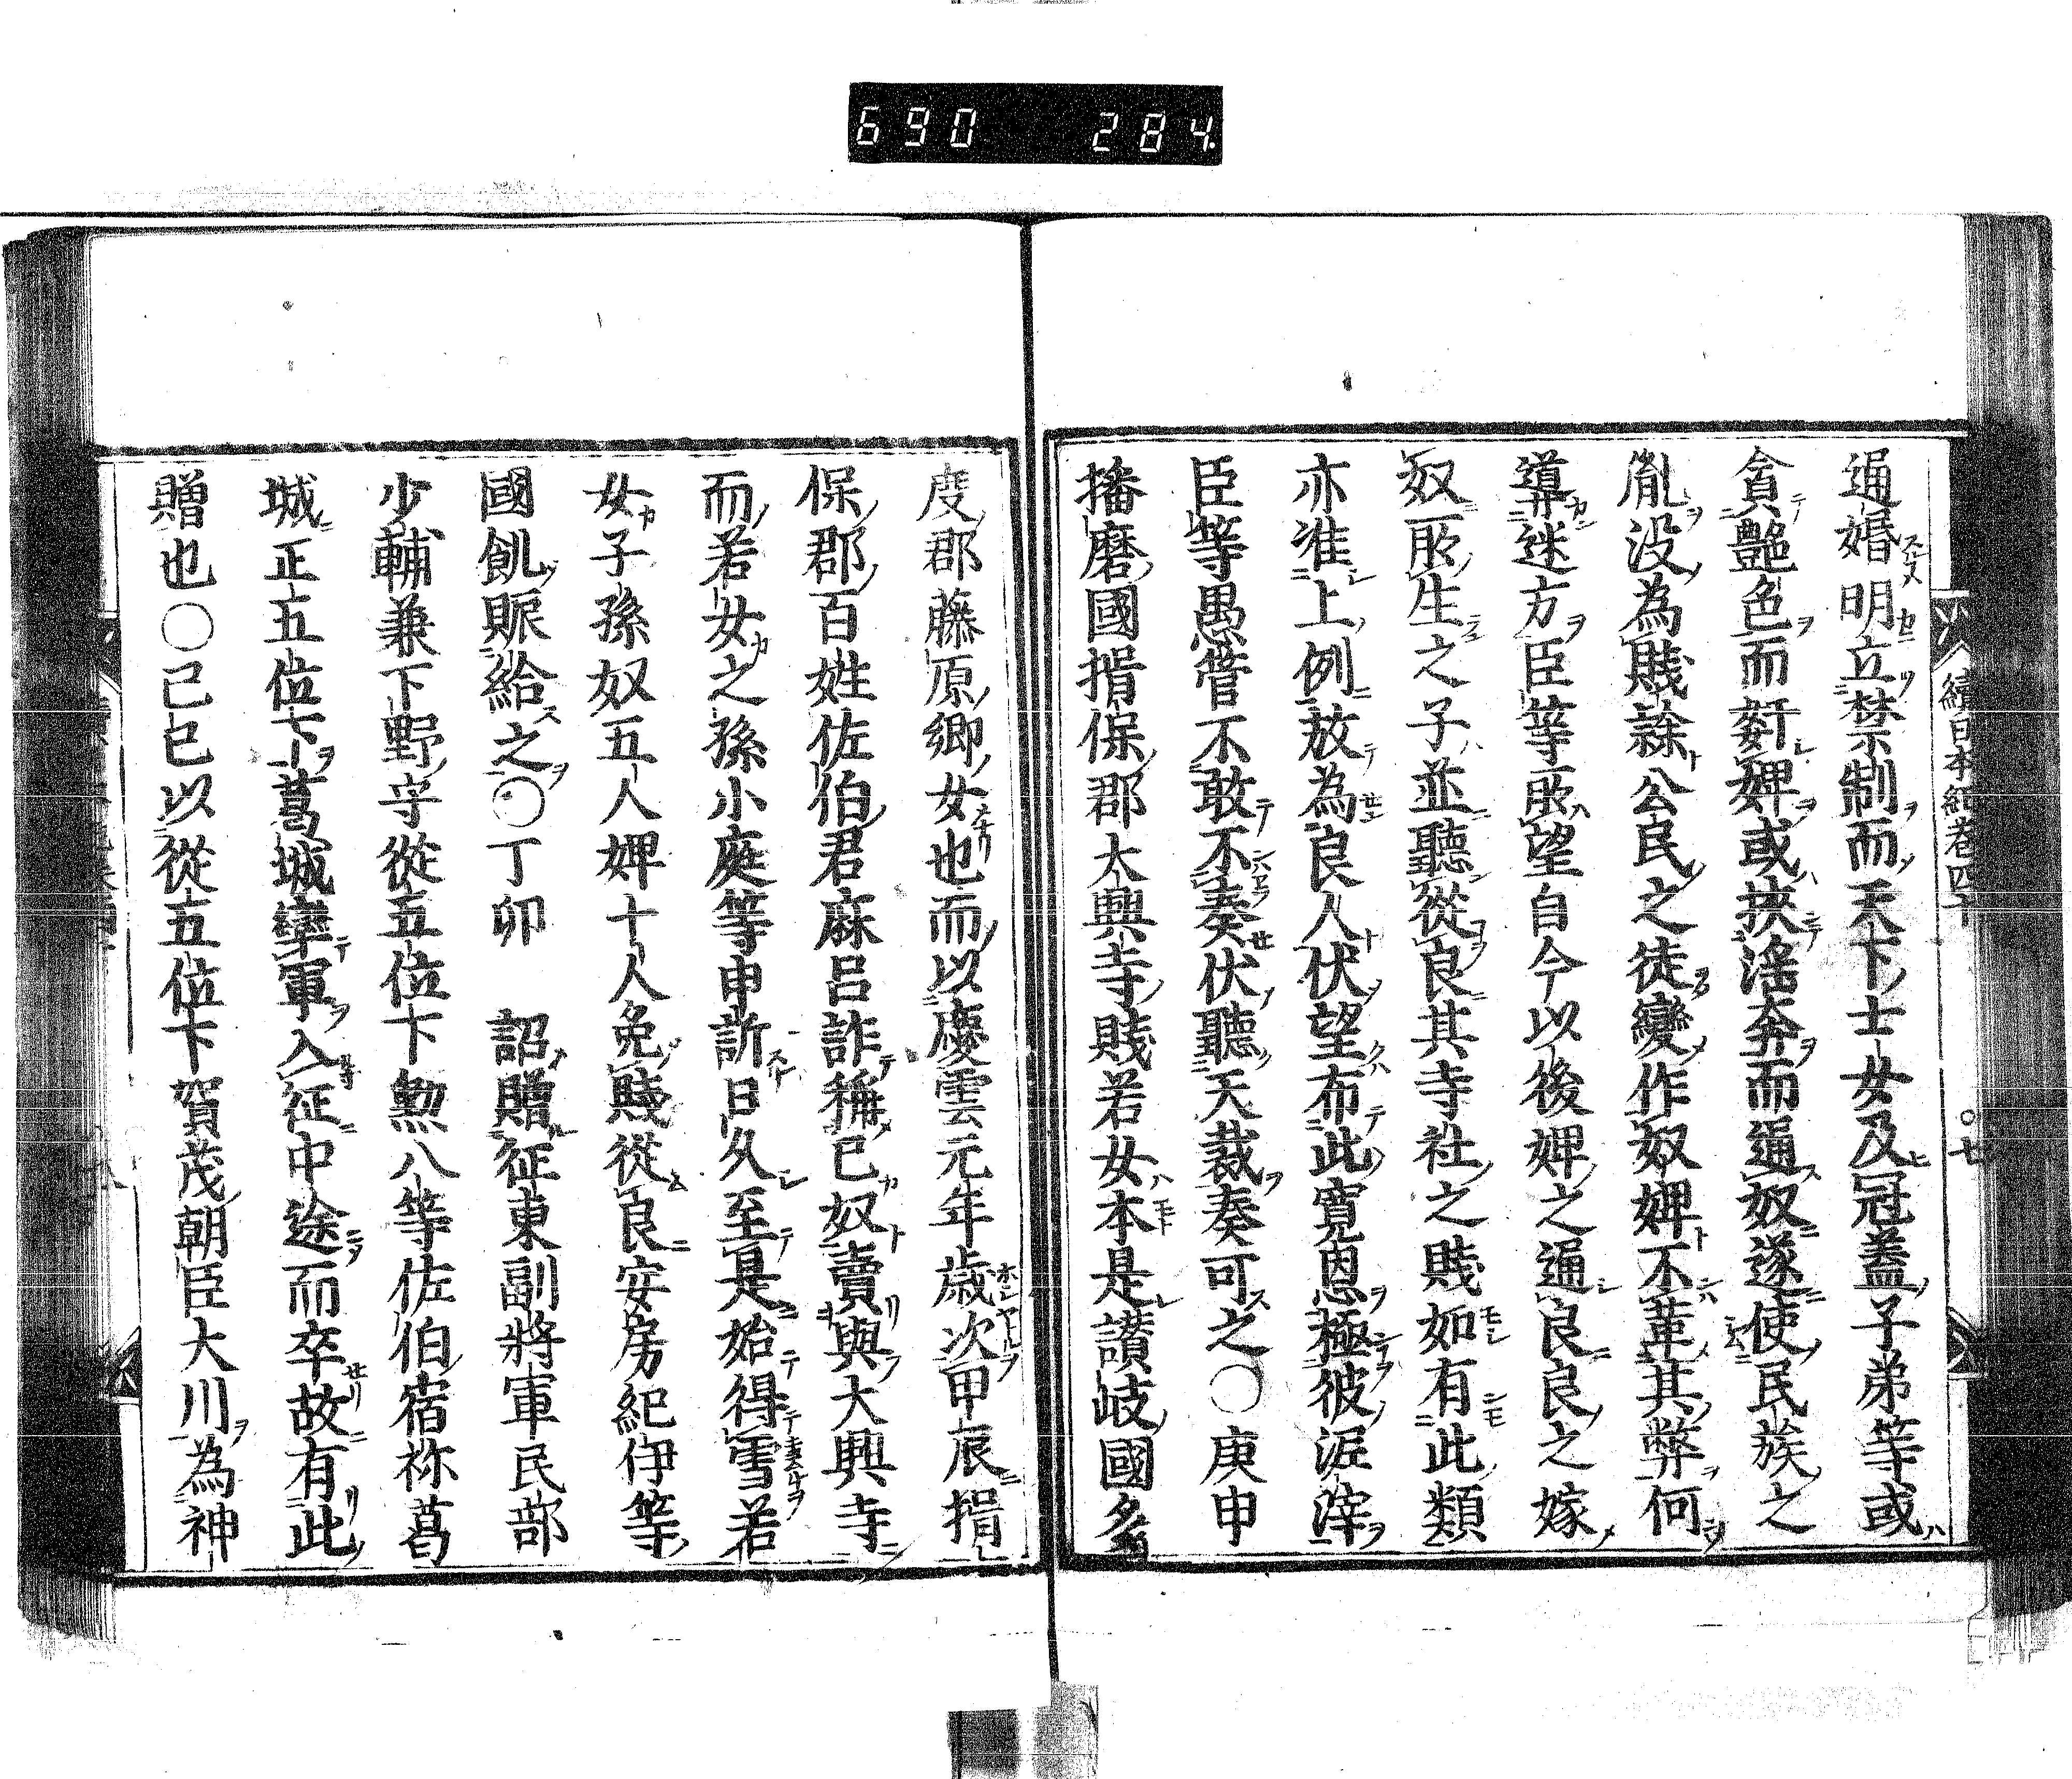 690 284.
續日本紀卷四十
○七
通婚明立禁制而天下士女及冠蓋子弟等或
貪艶色而姧婢或挾淫奔而通奴遂使民族之
胤没為賤隷公民之徒變作奴婢不革其弊何
導迷方臣等所望自今以後婢之通良良之嫁
奴所生之子並聽從良其寺社之賤如有此類
亦准上例放為良人伏望布此寛恩極彼泥滓
臣等愚管不敢不奏伏聽天裁奏可之○庚申
播磨國揖保郡大興寺賤若女本是讃岐國多
度郡藤原卿女也而以慶雲元年歳次甲辰揖
保郡百姓佐伯君麻呂詐稱己奴賣與大興寺
而若女之孫小庭等申訴日久至是始得雪若
女子孫奴五人婢十人免賤從良安房紀伊等
國飢賑給之○丁卯 詔贈征東副將軍民部
少輔兼下野守從五位下勲八等佐伯宿祢葛
城正五位下葛城率軍入征中途而卒故有此
贈也○己巳以從五位下賀茂朝臣大川為神